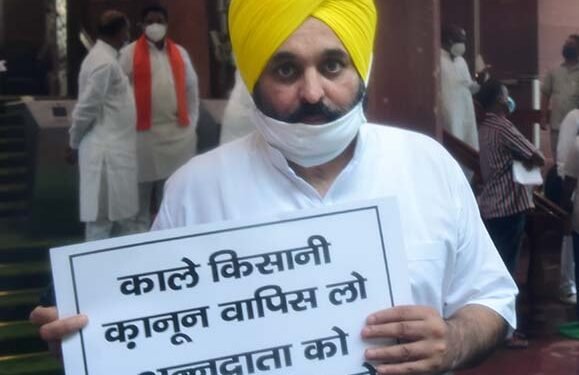 काले किसानी
क़ानून वापिस लो
अन्नदाता को